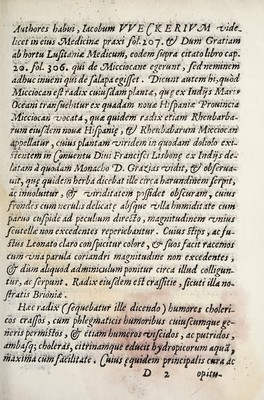 Authores habui, Iacobum VVECKERIVM vide
licet in eius Medicinæ praxi sol. 207. & Dum Gratiam
ab hortu Lusitaniæ Medicum, eodem supra citato libro cap.
20. fol. 306. qui de Micciocane egerunt, sed neminem
adhuc inueni qui de salapa egisset. Dicunt autem hi, quod
Micciocan est radix cuiusdam plantæ, quæ ex Indijs Maris
Oceani transuehitur ex quadam noua Hispaniæ Prouincia
Micciocan vocata, quæ quidem radix etiam Rheubarba-
rum eiusdem nouæ Hispaniæ, & Rheubabarum Micciocan
appellatur, cuius plantam viridem in quodam doliolo exi-
stentem in Conuentu Diui Francisci Lisbonę ex Indijs de-
latam à quolam Monacho D. Grazias vidit, & obserua-
uit, quę quidem herba dicebat ille circa harundinem serpit,
ac inuoluitur, & viriditatem possidet obscuram, cuius
frondes cum nerulis delicatę absque villa humiditate cum
paruo cuspide ad peculum directo, magnitudinem vnius
scutellæ non excedentes reperiebantur. Cuius stips, ac fu-
stus Leonato claro conspicitur colore, & suos facit racemos
cum vna parula coriandri magnitudine non excedentes,
& dum aliquod adminiculum ponitur circa illud colligun-
tur, ac serpunt. Radix eiusdem est crassitie, sicuti illa no-
stratis Brioniæ.
Hæc radix (sequebatur ille dicendo) humores choleri-
cos crassos, cum phlegmaticis humoribus cuiuscumque ge-
neris permistos, & etiam humores viscidos, ac putridos,
ambasq; choleras, citrinamque educit hydropicorum aquã,
maxima cum facilitate. Cuius equidem principalis cura ac
D 2 opitu-